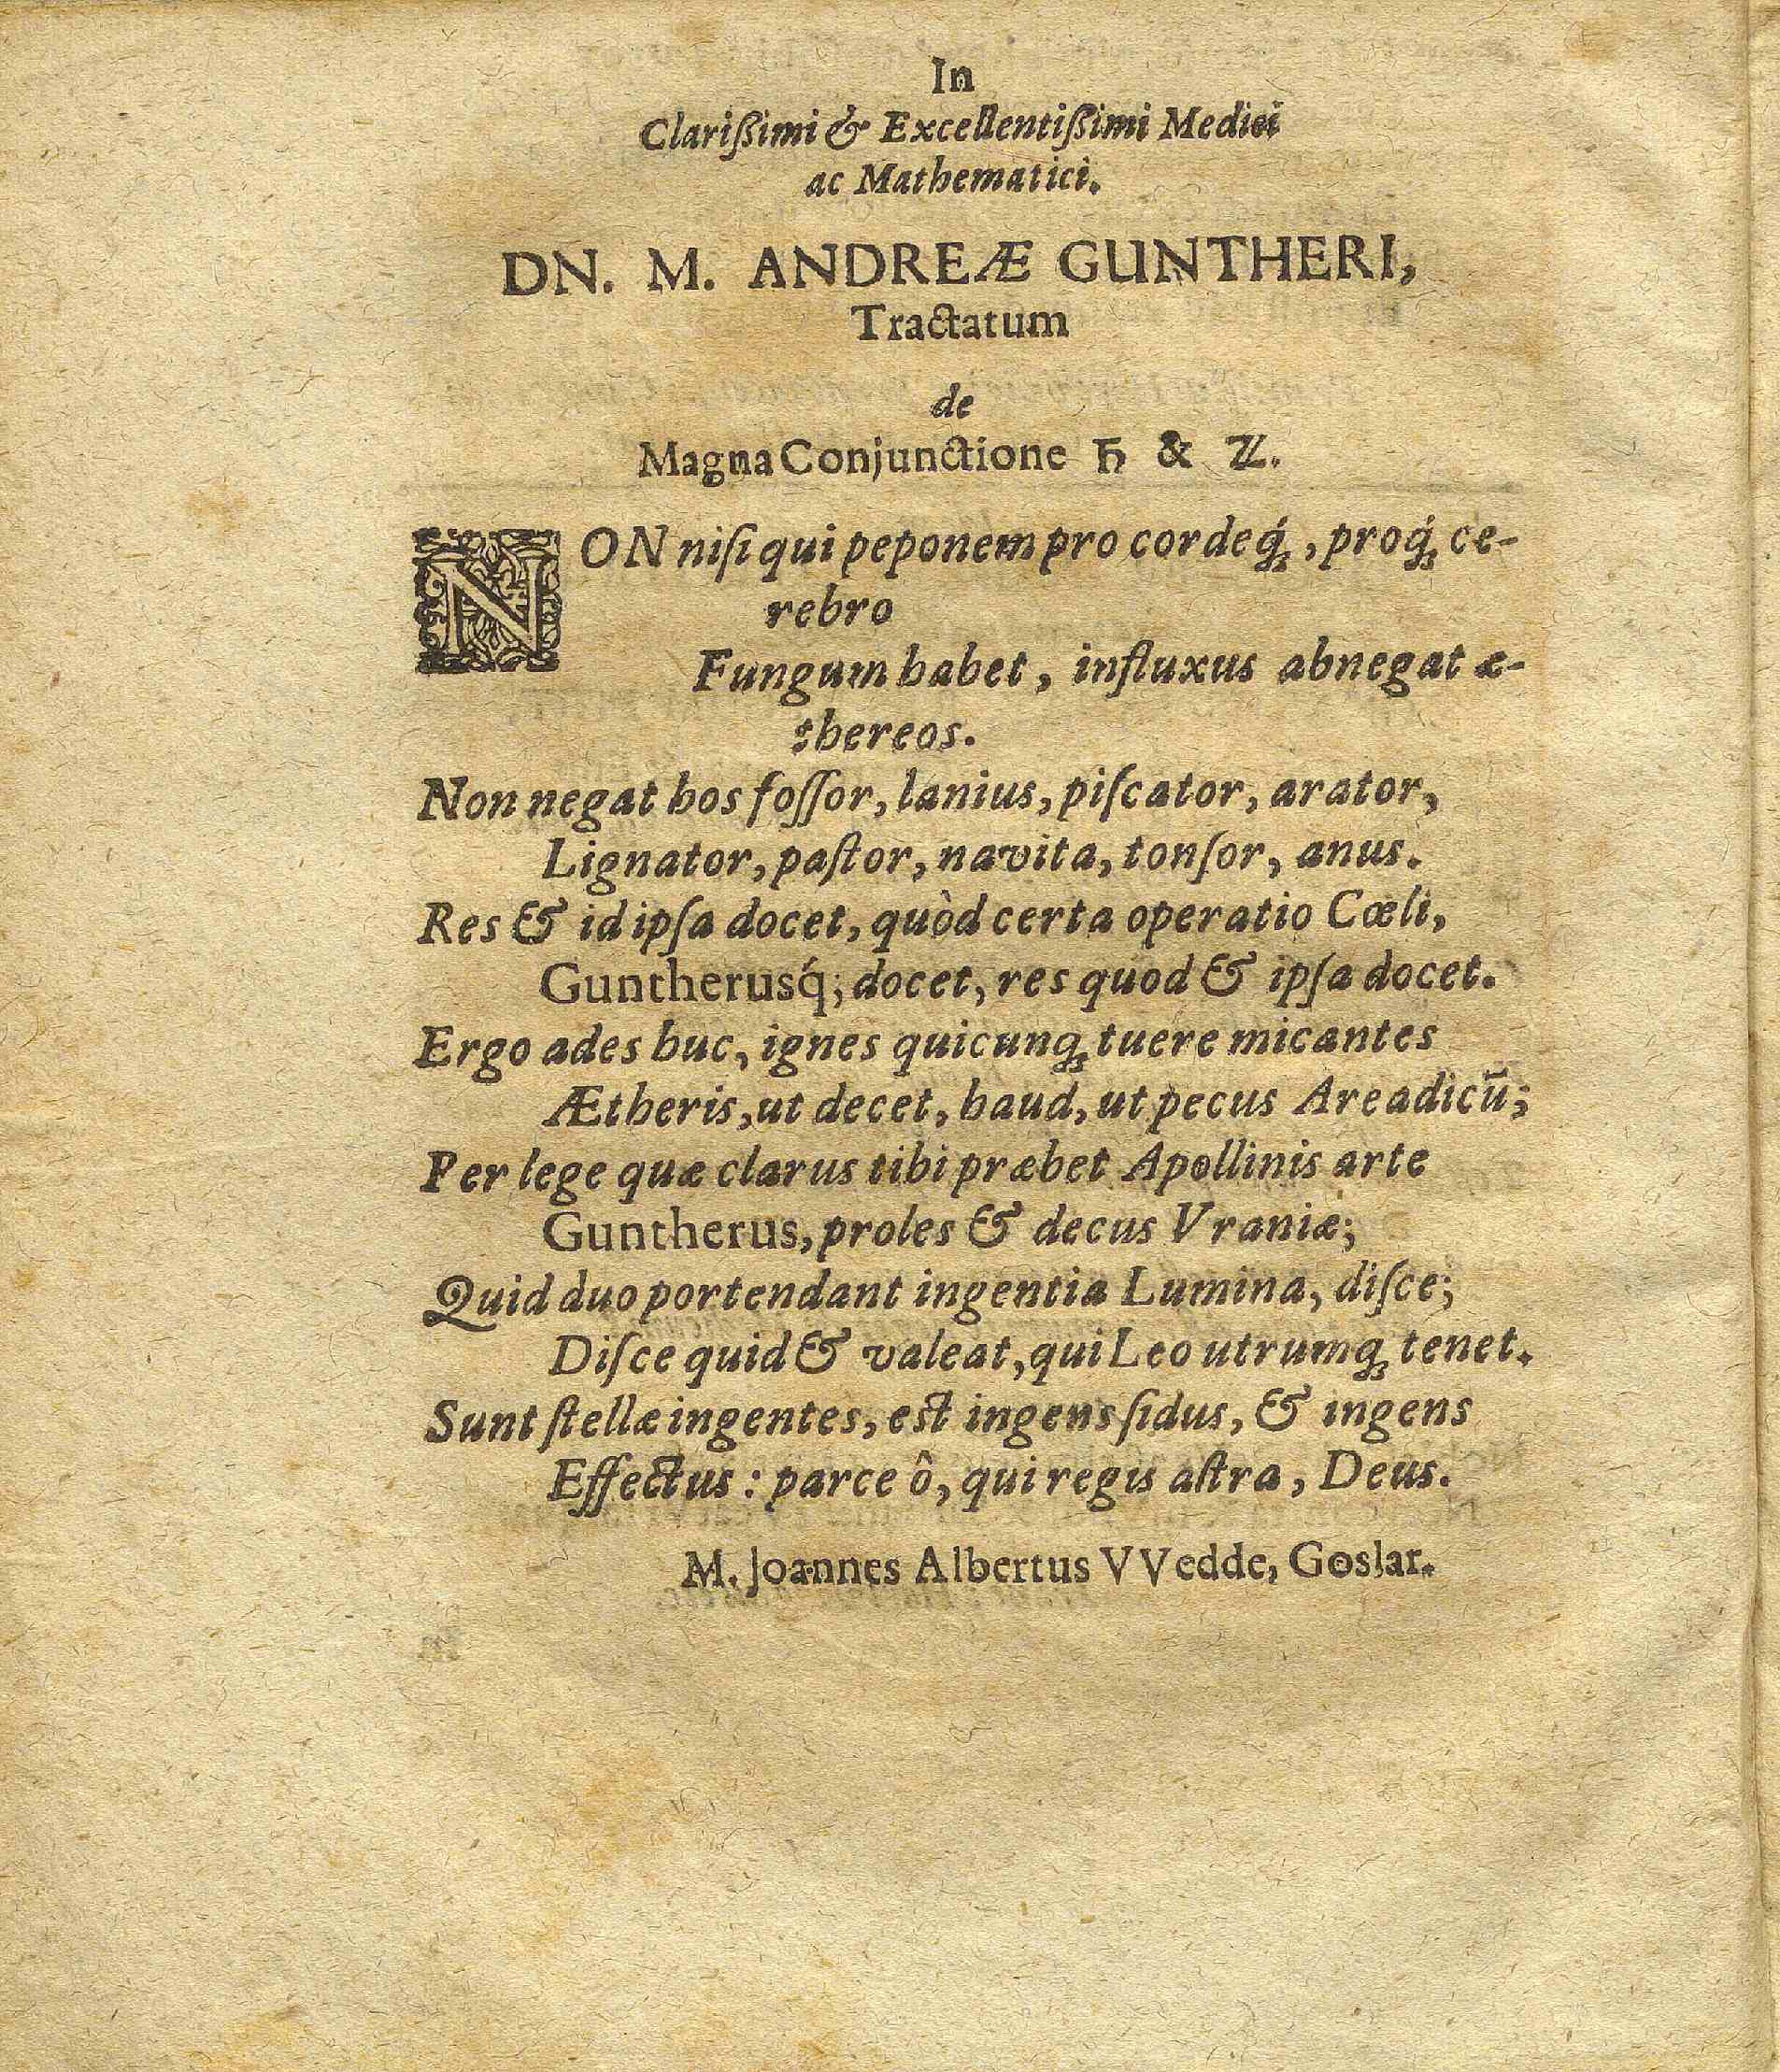 In
Clarißimi & Excellentißimi Medici
ac Mathematici.
DN. M. ANDREÆ GUNTHERI,
Tractatum
de
Magna Conjunctione ♄ & ♃.
NON niſi qui peponem pro cordeq́;, proq́; ce-
rebro
Fungum habet, influxus abnegat æ-
thereos.
Non negat hos foſſor, lanius, piſcator, arator,
Lignator, paſtor, navita, tonſor, anus.
Res & id ipſa docet, quòd certa operatio Cœli,
Guntherusq́; docet, res quod & ipſa docet.
Ergo ades huc, ignes quicunq; tuere micantes
Ætheris, ut decet, haud, ut pecus Arcadicũ;
Per lege quæ clarus tibi præbet Apollinis arte
Guntherus, proles & decus Vraniæ;
Quid duo portendant ingentia Lumina, diſce;
Diſce quid & valeat, qui Leo utrumq; tenet.
Sunt ſtellæ ingentes, est ingens ſidus, & ingens
Effectus: parce ô, qui regis aſtra, Deus.
M. Joannes Albertus VVedde, Goslar.